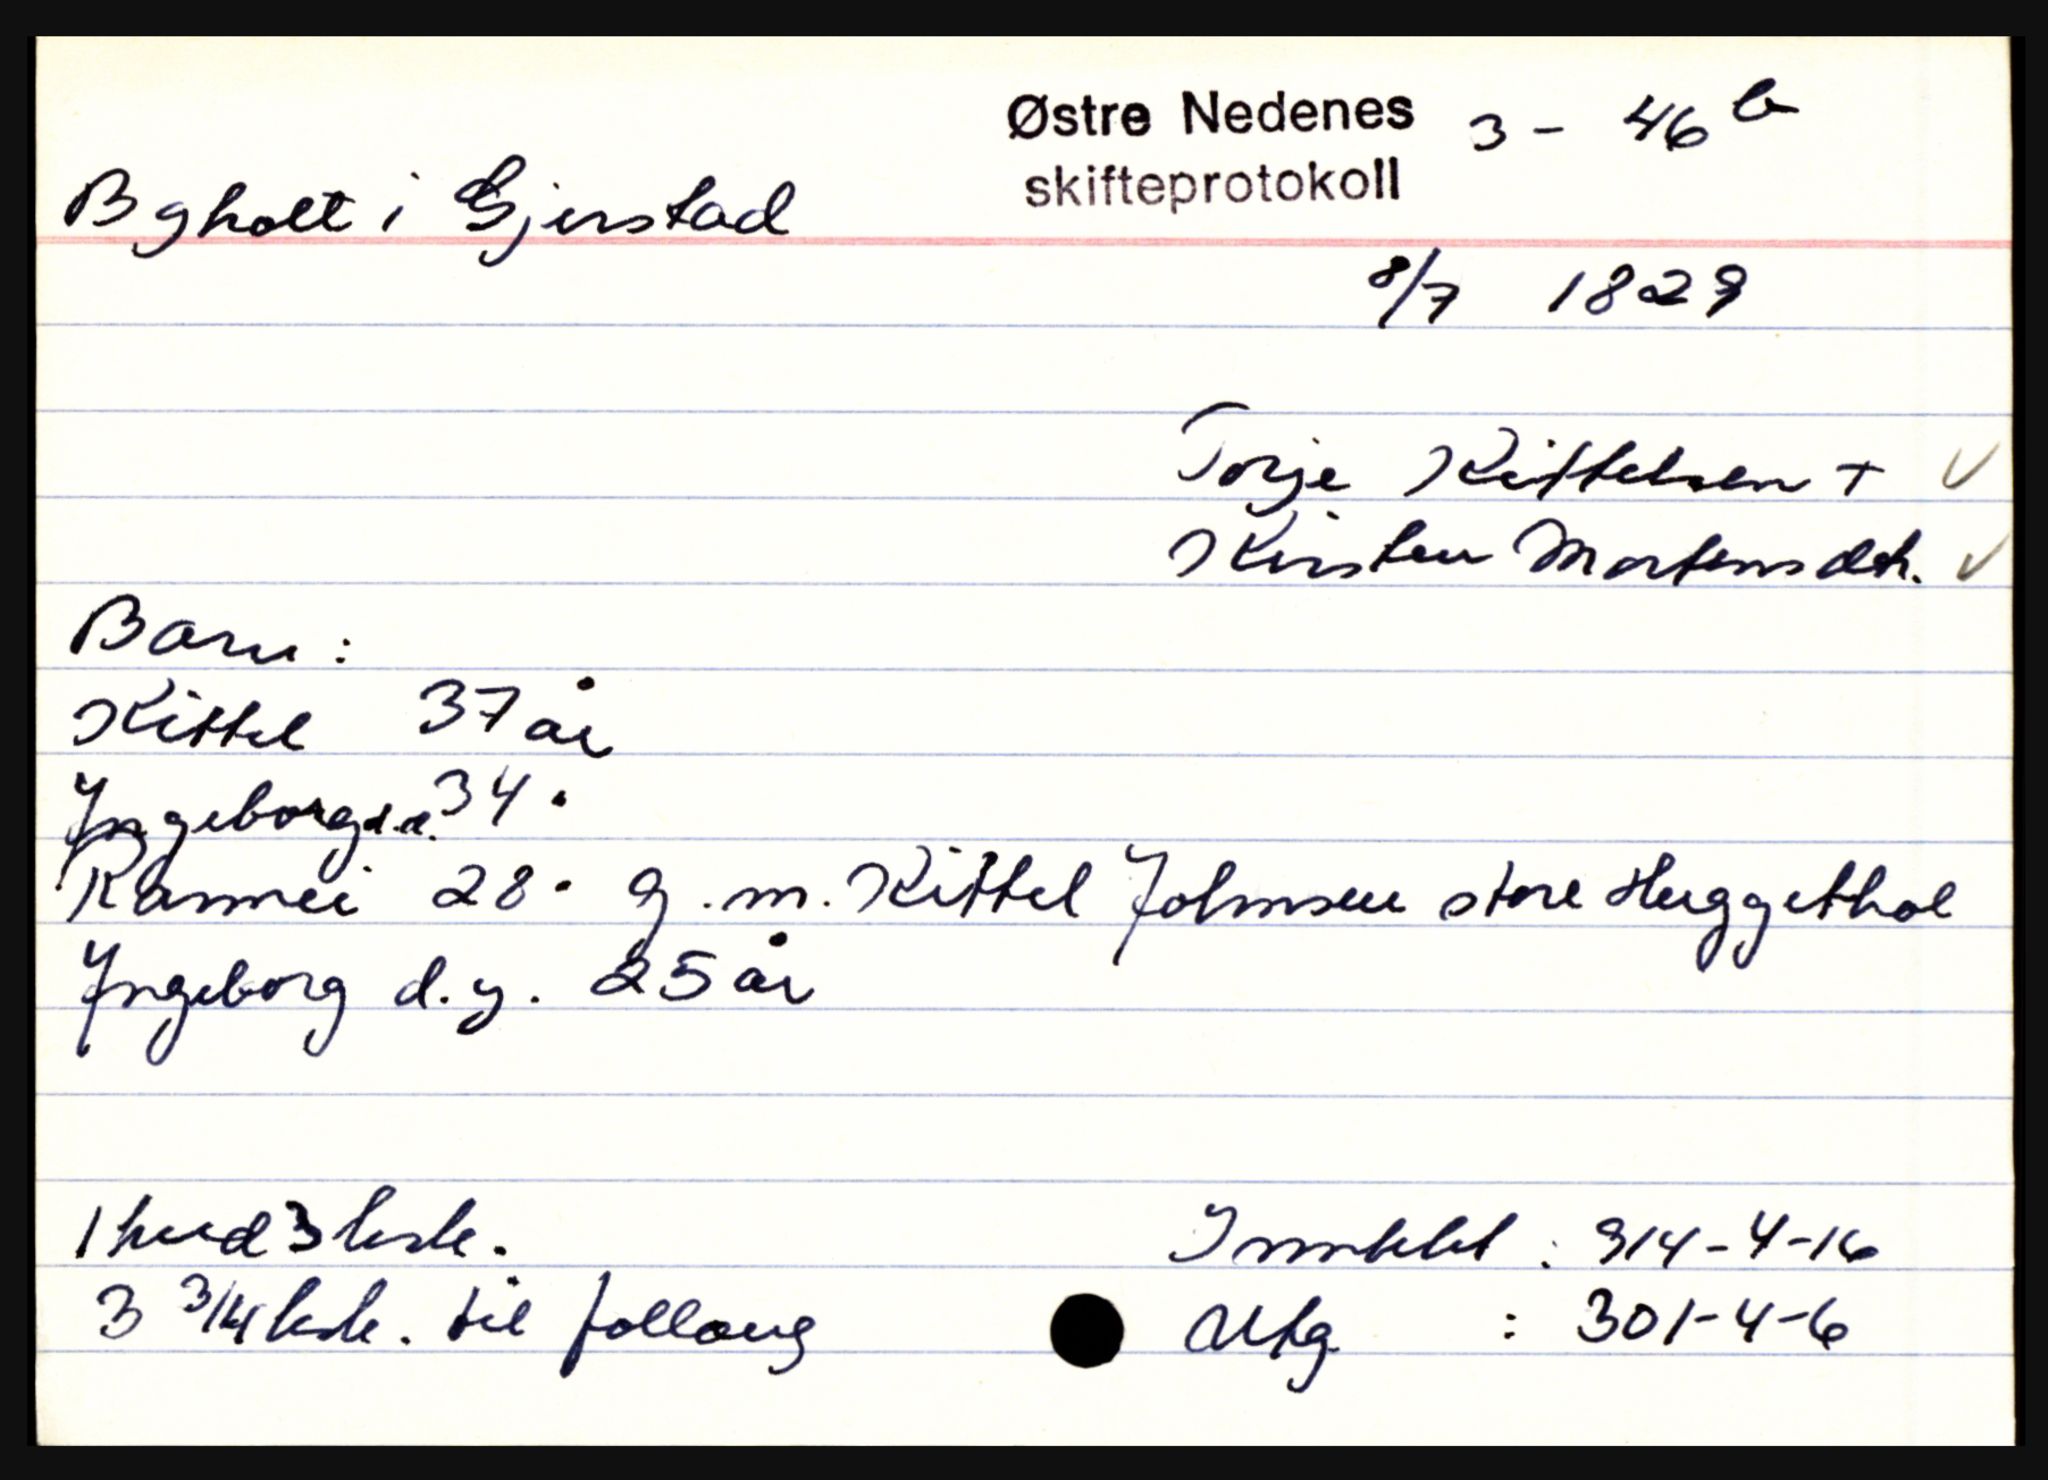 Østre Nedenes 3 - 46 b
skifteprotokoll
Bgholt i Gjerstad
8/7 1829
Torje Kittelsen +
Kirsten Mortensdtr.
Barn:
Kittel 37 år
Ingeborg d.e. 34 "
Rannei 28 " g.m. Kittel Johnsen store Huggethol
Ingeborg d.y. 25 år
1 hud 3 ksk. Inntekt : 914-4-16
3 3/4 ksk. til follaug Utg : 301-4-6